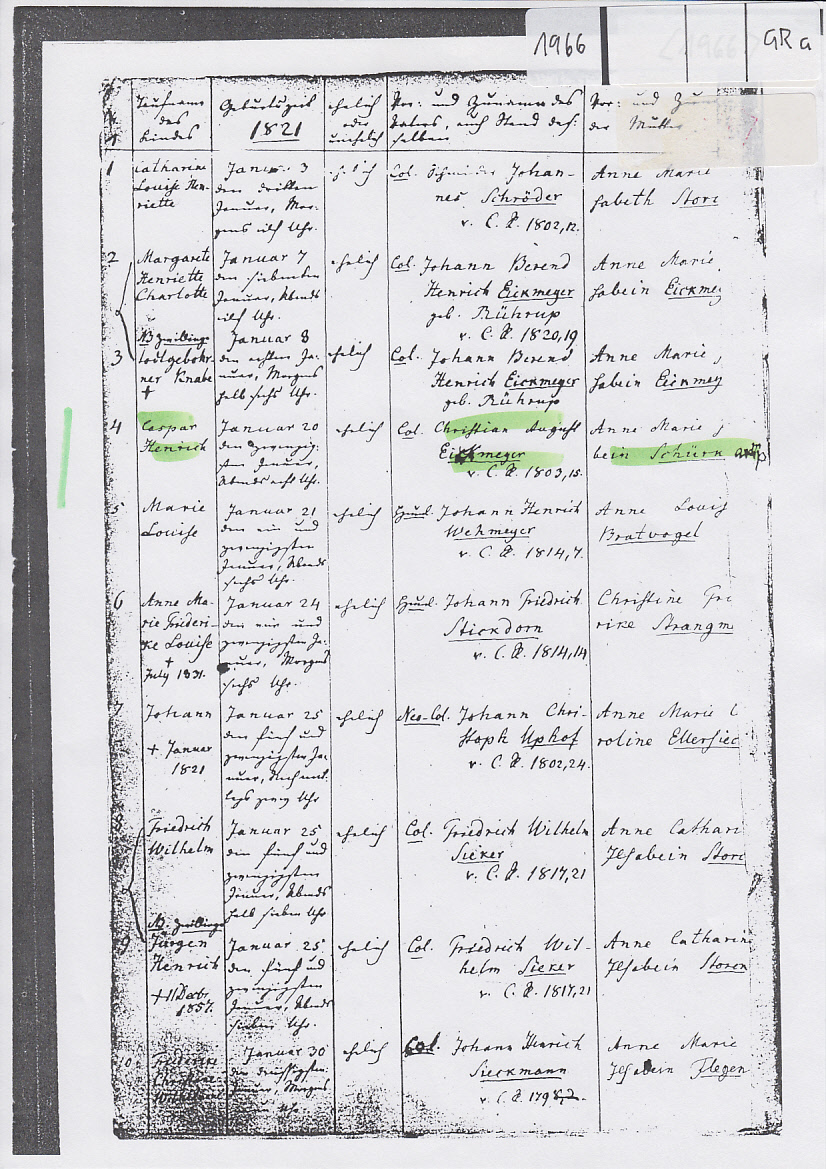 1966
GRa
Taufname
des
Kindes
Geburtszeit
1821
ehelich
oder
unehelich
Vor- und Zuname des
Vaters, auch Stand des-
selben
Vor- und Zu
der Mutter
1
Catharine
Louise Hen-
riette
Januar 3
den dritten
Januar, Mor-
gens elf Uhr.
ehelich
Col. Johan-
nes Schröder
v. C. 1802, 12.
Anne Marie
sabeth Stor
2
Margarete
Henriette
Charlotte
Januar 7
den siebenten
Januar, Abends
elf Uhr.
ehelich
Col. Johann Berend
Henrich Eickmeyer
geb. Rührup
v. C. 1820, 19
Anne Marie
sabein Eickmey
NB Zwillinge
3
todtgebohr-
ner Knabe
†
Januar 8
den achten Ja-
nuar, Morgens
halb sechs Uhr.
ehelich
Col. Johann Berend
Henrich Eickmeyer
geb. Rührup
Anne Marie
sabein Eickmey
4
Caspar
Henrich
Januar 20
den zwanzig-
sten Januar,
Abends acht Uhr.
ehelich
Col. Christian August
Eickmeyer
v. C. 1803, 15.
Anne Marie
bein Schürk
5
Marie
Louise
Januar 21
den ein und
zwanzigsten
Januar, Abends
sechs Uhr.
ehelich
Johann Henrich
Wehmeyer
v. C. 1814, 7.
Anne Louis
Bratvogel
6
Anne Ma-
rie Friederi-
ke Louise
†
July 1831.
Januar 24
den vier und
zwanzigsten Ja-
nuar, Morgens
sechs Uhr.
ehelich
Johann Friedrich
Stickdorn
v. C. 1814, 14
Christine Fri
rike Strangm
7
Johann
† Januar
1821
Januar 25
den fünf und
zwanzigsten Ja-
nuar, Nachmit-
tags zwey Uhr
ehelich
Neo-Col. Johann Chri-
stoph Uphof
v. C. 1802, 24.
Anne Marie
roline Ellersiec
8
Friedrich
Wilhelm
Januar 25
den fünf und
zwanzigsten
Januar, Abends
halb sieben Uhr
ehelich
Col. Friedrich Wilhelm
Sieker
v. C. 1817, 21
Anne Cathari
Ilsabein Stor
NB. Zwillinge
9
Jürgen
Henrich
† 11 Decbr.
1857.
Januar 25
den fünf und
zwanzigsten
Januar, Abends
sieben Uhr.
ehelich
Col. Friedrich Wil-
helm Sieker
v. C. 1817, 21
Anne Catharin
Ilsabein Storen
10
Friederike
Christine
Januar 30
den dreissigsten
Januar, Morgens
Uhr
ehelich
Col. Johann Henrich
Sieckmann
v. C. 1798, 2.
Anne Marie
Ilsabein Flegen